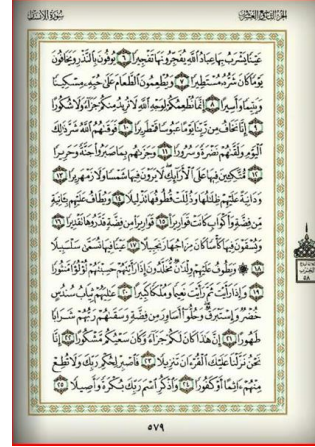 الجزء التاسع والعشرون
سورة الإنسان
عَيْنًا يَشْرَبُ بِهَا عِبَادُ اللَّهِ يُفَجِّرُونَهَا تَفْجِيرًا ٦ يُوفُونَ بِالنَّذْرِ وَيَخَافُونَ
يَوْمًا كَانَ شَرُّهُ مُسْتَطِيرًا ٧ وَيُطْعِمُونَ الطَّعَامَ عَلَى حُبِّهِ مِسْكِينًا
وَيَتِيمًا وَأَسِيرًا ٨ إِنَّمَا نُطْعِمُكُمْ لِوَجْهِ اللَّهِ لَا نُرِيدُ مِنكُمْ جَزَاءً وَلَا شُكُورًا
٩ إِنَّا نَخَافُ مِن رَّبِّنَا يَوْمًا عَبُوسًا قَمْطَرِيرًا ١٠ فَوَقَاهُمُ اللَّهُ شَرَّ ذَٰلِكَ
الْيَوْمِ وَلَقَّاهُمْ نَضْرَةً وَسُرُورًا ١١ وَجَزَاهُم بِمَا صَبَرُوا جَنَّةً وَحَرِيرًا
١٢ مُّتَّكِئِينَ فِيهَا عَلَى الْأَرَائِكِ لَا يَرَوْنَ فِيهَا شَمْسًا وَلَا زَمْهَرِيرًا ١٣
وَدَانِيَةً عَلَيْهِمْ ظِلَالُهَا وَذُلِّلَتْ قُطُوفُهَا تَذْلِيلًا ١٤ وَيُطَافُ عَلَيْهِم بِآنِيَةٍ
مِّن فِضَّةٍ وَأَكْوَابٍ كَانَتْ قَوَارِيرَا ١٥ قَوَارِيرَا مِن فِضَّةٍ قَدَّرُوهَا تَقْدِيرًا ١٦
وَيُسْقَوْنَ فِيهَا كَأْسًا كَانَ مِزَاجُهَا زَنجَبِيلًا ١٧ عَيْنًا فِيهَا تُسَمَّى سَلْسَبِيلًا
١٨ ۞ وَيَطُوفُ عَلَيْهِمْ وِلْدَانٌ مُّخَلَّدُونَ إِذَا رَأَيْتَهُمْ حَسِبْتَهُمْ لُؤْلُؤًا مَّنثُورًا
١٩ وَإِذَا رَأَيْتَ ثَمَّ رَأَيْتَ نَعِيمًا وَمُلْكًا كَبِيرًا ٢٠ عَالِيَهُمْ ثِيَابُ سُندُسٍ
خُضْرٌ وَإِسْتَبْرَقٌ وَحُلُّوا أَسَاوِرَ مِن فِضَّةٍ وَسَقَاهُمْ رَبُّهُمْ شَرَابًا
طَهُورًا ٢١ إِنَّ هَٰذَا كَانَ لَكُمْ جَزَاءً وَكَانَ سَعْيُكُم مَّشْكُورًا ٢٢ إِنَّا
نَحْنُ نَزَّلْنَا عَلَيْكَ الْقُرْآنَ تَنزِيلًا ٢٣ فَاصْبِرْ لِحُكْمِ رَبِّكَ وَلَا تُطِعْ
مِنْهُمْ آثِمًا أَوْ كَفُورًا ٢٤ وَاذْكُرِ اسْمَ رَبِّكَ بُكْرَةً وَأَصِيلًا ٢٥
٥٧٩